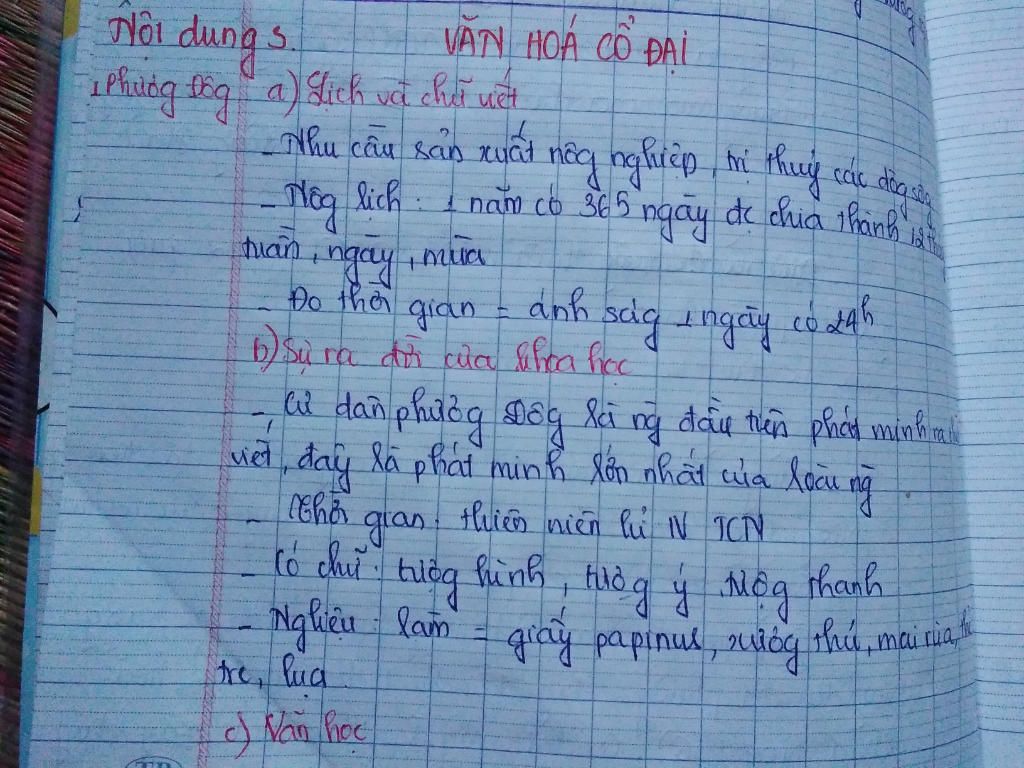 Nội dung 5. VĂN HOÁ CỔ ĐẠI
1 Phương Đôg a) Lịch và chữ viết
- Nhu cầu sản xuất nôg nghiệp, trị thuỷ các dòg sôg
- Nôg lịch: 1 năm có 365 ngày đc chia thành 12
tuần, ngày, mùa
- Đo thời gian = ánh ságg 1 ngày có 24h
b) Sự ra đời của khoa học
- Cư dân phươg Đôg là ng đầu tiên phát minh ra
viết, đây là phát minh lớn nhất của loài ng
- Thời gian: thiên niên kỉ IV TCN
- Có chữ: tượg hình, tượg ý, tượg thanh
- Nghiệu: làm = giấy papirus, xươg thú, mai rùa,
tre, lụa
c) Văn học